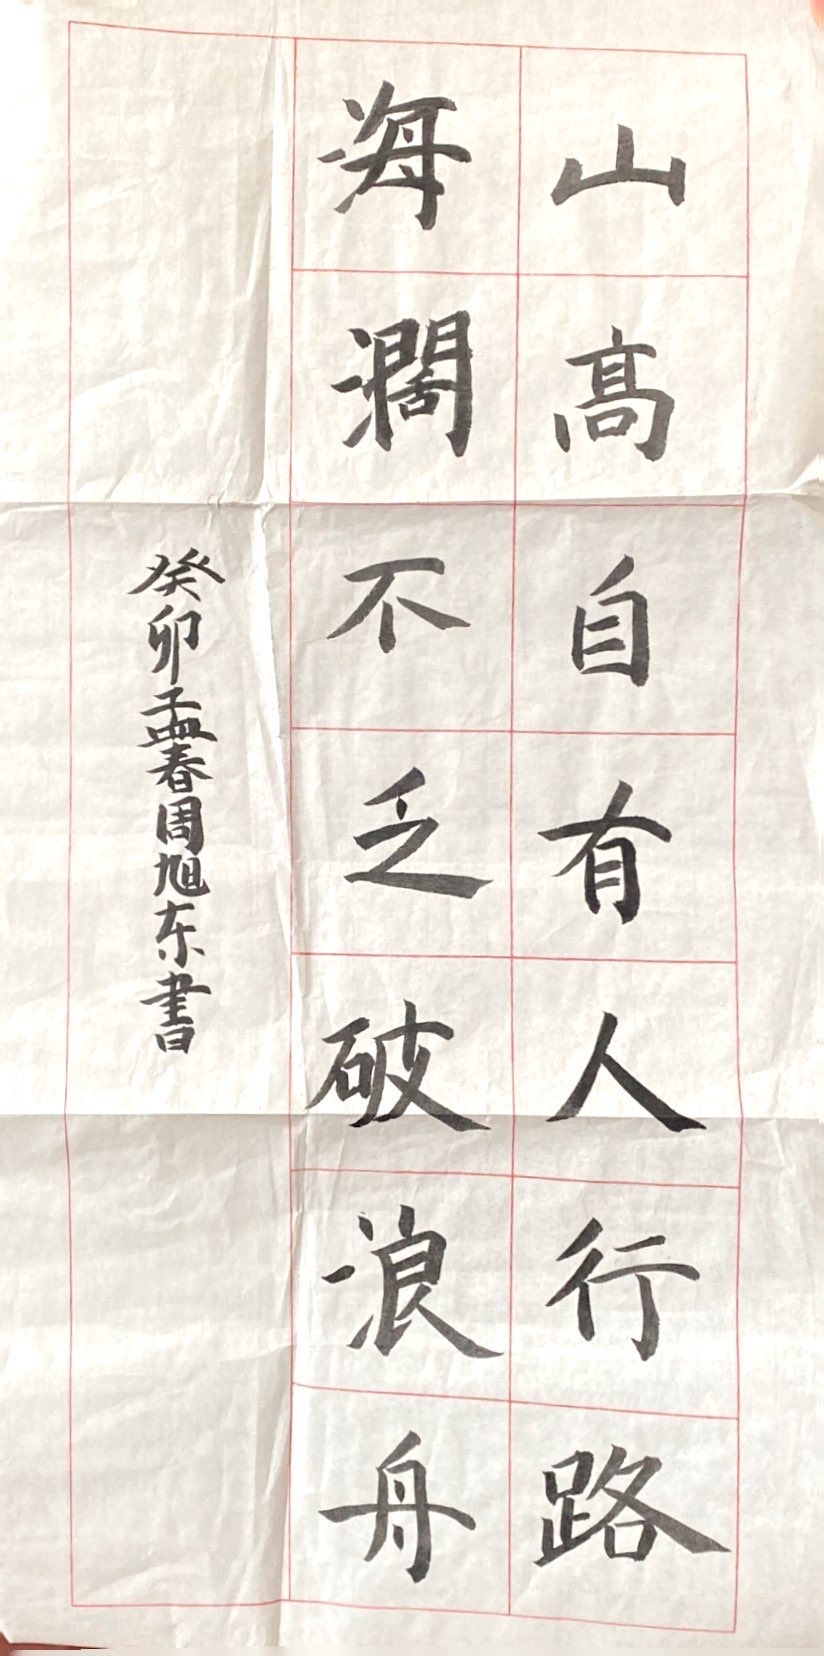 山高自有人行路
海濶不乏破浪舟
癸卯孟春周旭东書